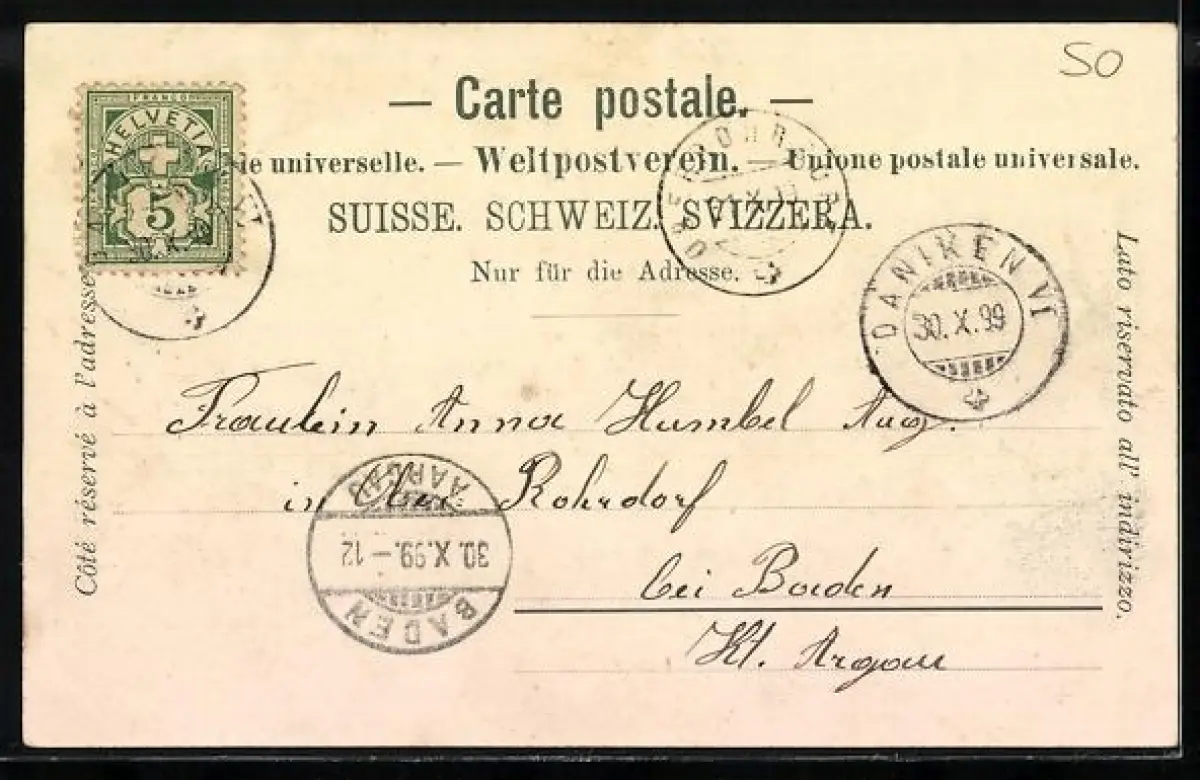 50
— Carte postale. —
ie universelle. — Weltpostverein. — Unione postale universale.
SUISSE. SCHWEIZ. SVIZZERA.
Nur für die Adresse.
FRANCO
HELVETIA
5
30.X.99
DÄNIKEN VI
30.X.99
Côté réservé à l'adresse
Lato riservato all' indirizzo.
Fräulein Anna Humbel Aug.
in Ober Rohrdorf
bei Baden
Kt. Argau
BADEN
30.X.99.–12
AARGAU